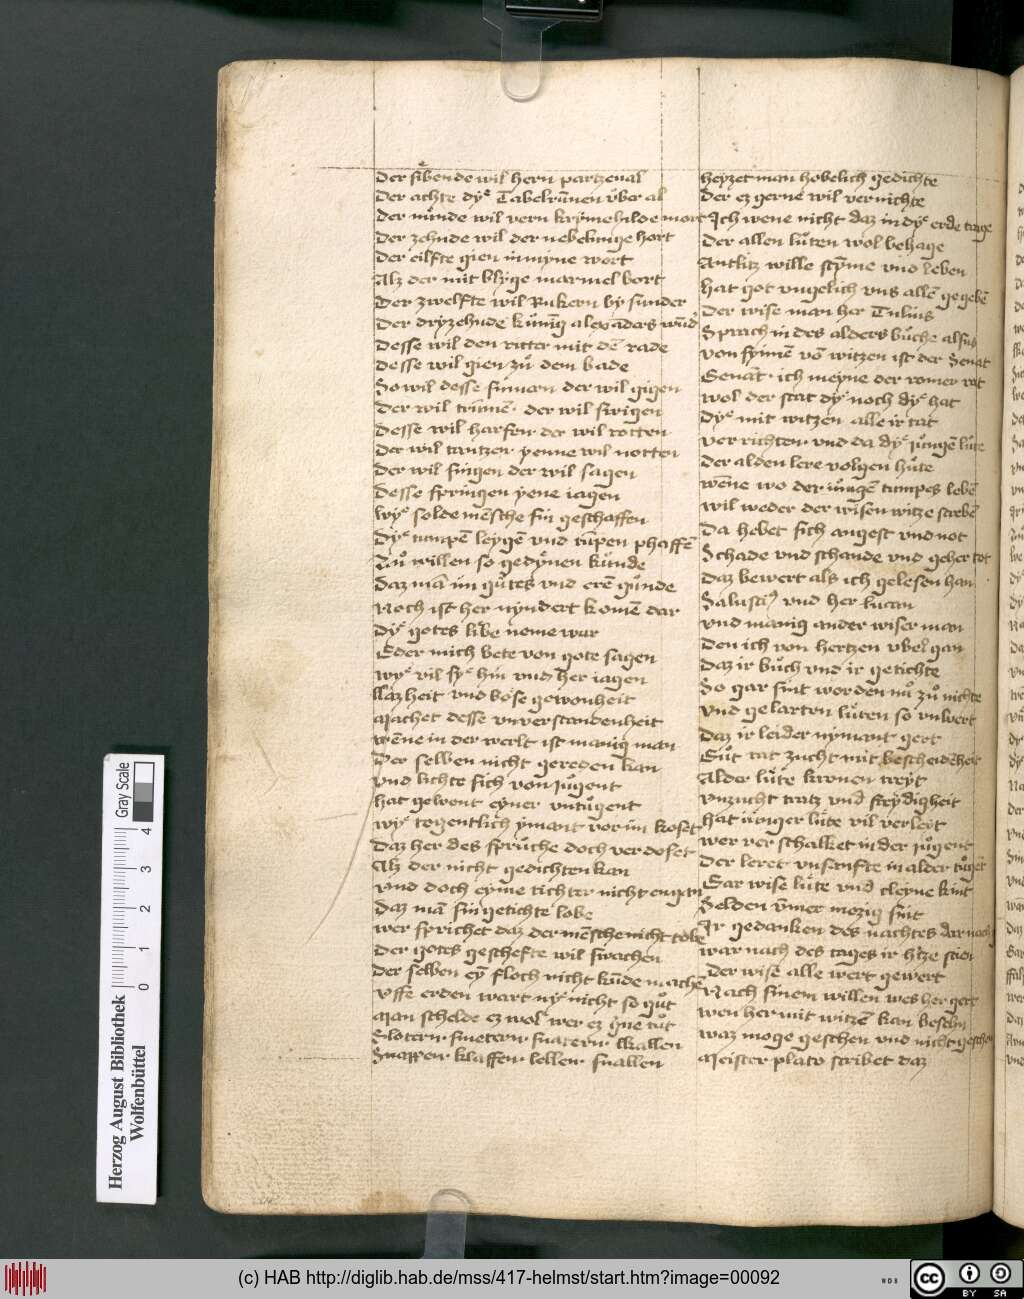 Der sibende wil hern partzeual
Der achte dyͤ Tabelrunen vͤber al
Der nuͤnde wil vern krymehilde mort
Der zehnde wil der nebelunge hort
Der eilfte gien in myne wort
Alz der mit blyge marmel bort
Der zwelfte wil Rukern by sunder
Der dryzehnde kuͤnig alexāders wūd'
Desse wil den ritter mit dē rade
Desse wil gien zuͦ dem bade
So wil desse der wil gigen
Der wil trinnē · der wil swigen
Desse wil harfen · der wil rotten
Der wil tantzen yenne wil notten
Der wil singen der wil sagen
Desse springen yene iagen
Wyͤ solde mēsche sin geschaffen
Dyͤ tumpē leygē vnd tūpen phaffē
Zuͦ willen so gedyͤnen kuͤnde
Daz mā im guͦtes vnd erē guͤnde
Noch ist her nyndert komē dar
Dyͤ gotes libe neme war
Eder mich bete von gote sagen
Wyͤ vil syͤ hin vnd her iagen
Lazheit vnd boͤse gewonheit
Machet desse vnverstandenheit
Wēne in der werlt ist manig man
Der selben nicht gereden kan
Vnd lichte sich von iuͦgent
Hat gewent eyner vntuͦgent
Wyͤ togentlich ymant vor im koset
Daz her des spruͤche doch verdoset
Alz der nicht gedichten kan
Vnd doch eyme tichter nicht engan
Daz mā sin getichte lobe
Wer sprichet daz der mēsche nicht tobe
Der gotes geschefte wil swachen
Der selben eyͤ floch nicht kuͤnde machē
Vffe erden wart nyͤ nicht so guͦt
Man schelde ez wol wer ez g'ne tuͦt
Slotern · smetern · snatern · kallen
Snappen · klaffen · lellen · snallen
Heyzet man hobelich gedichte
Der ez gerne wil vernichte
Ich wene nicht daz in dyͤ erde trage
Der allen luͤten wol behage
Antlitz wille styme vnd leben
Hat got vngelich vns allē gegebē
Der wise man her Tulius
Sprach in des alders buͦche alsus
Von synnē vō witzen ist der Senat
Genāt · ich meyne der romer rat
Wol der stat dyͤ noch dyͤ hat
Dyͤ mit witzen alle ir tat
Verrichten · vnd da dyͤ iuͦngē luͤte
Der alden lere volgen huͤte
Wēne wo der iuͦngē tumpes lebē
Wil weder der wisen witze strebē
Da hebet sich angest vnd not
Schade vnd schande vnd geher tot
Daz bewert als ich gelesen han
Salusti' vnd her lucan
Vnd manig ander wiser man
Den ich von hertzen vbel gan
Daz ir buͦch vnd ir getichte
So gar sint worden nuͦ zuͦ nichte
Vnd gelarten luͤten so vnwert
Daz ir leider nymant gert
Guͦt rat zucht mit bescheidēheit
Alder luͤte kronen treyt
Vnzucht tratz vnd freydigheit
Hat iunger luͤte vil verleyt
Wer verschalket in der iuͦgent
Der leret vnsanfte in alder tuͦgēt
Gar wise luͤte vnd cleyne kint
Selden vmer mozig sint
Ir gedanken des nachtes dar nach
War nach des tages ir h'tze
Der wise alle wert gewert
Nach sinem willen wes her gert
Wen her mit witzē kan besehn
Waz moge geschen vnd nicht geschen
Meister plato scribet daz
Gray Scale
0 1 2 3 4
Herzog August Bibliothek
Wolfenbüttel
(c) HAB http://diglib.hab.de/mss/417-helmst/start.htm?image=00092
WDB
cc BY SA